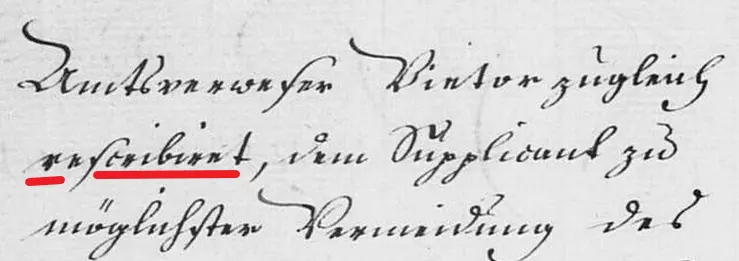 Amtsverweser Vietor zugleich
rescribiret, dem Supplicant zu
möglichster Vermeidung des